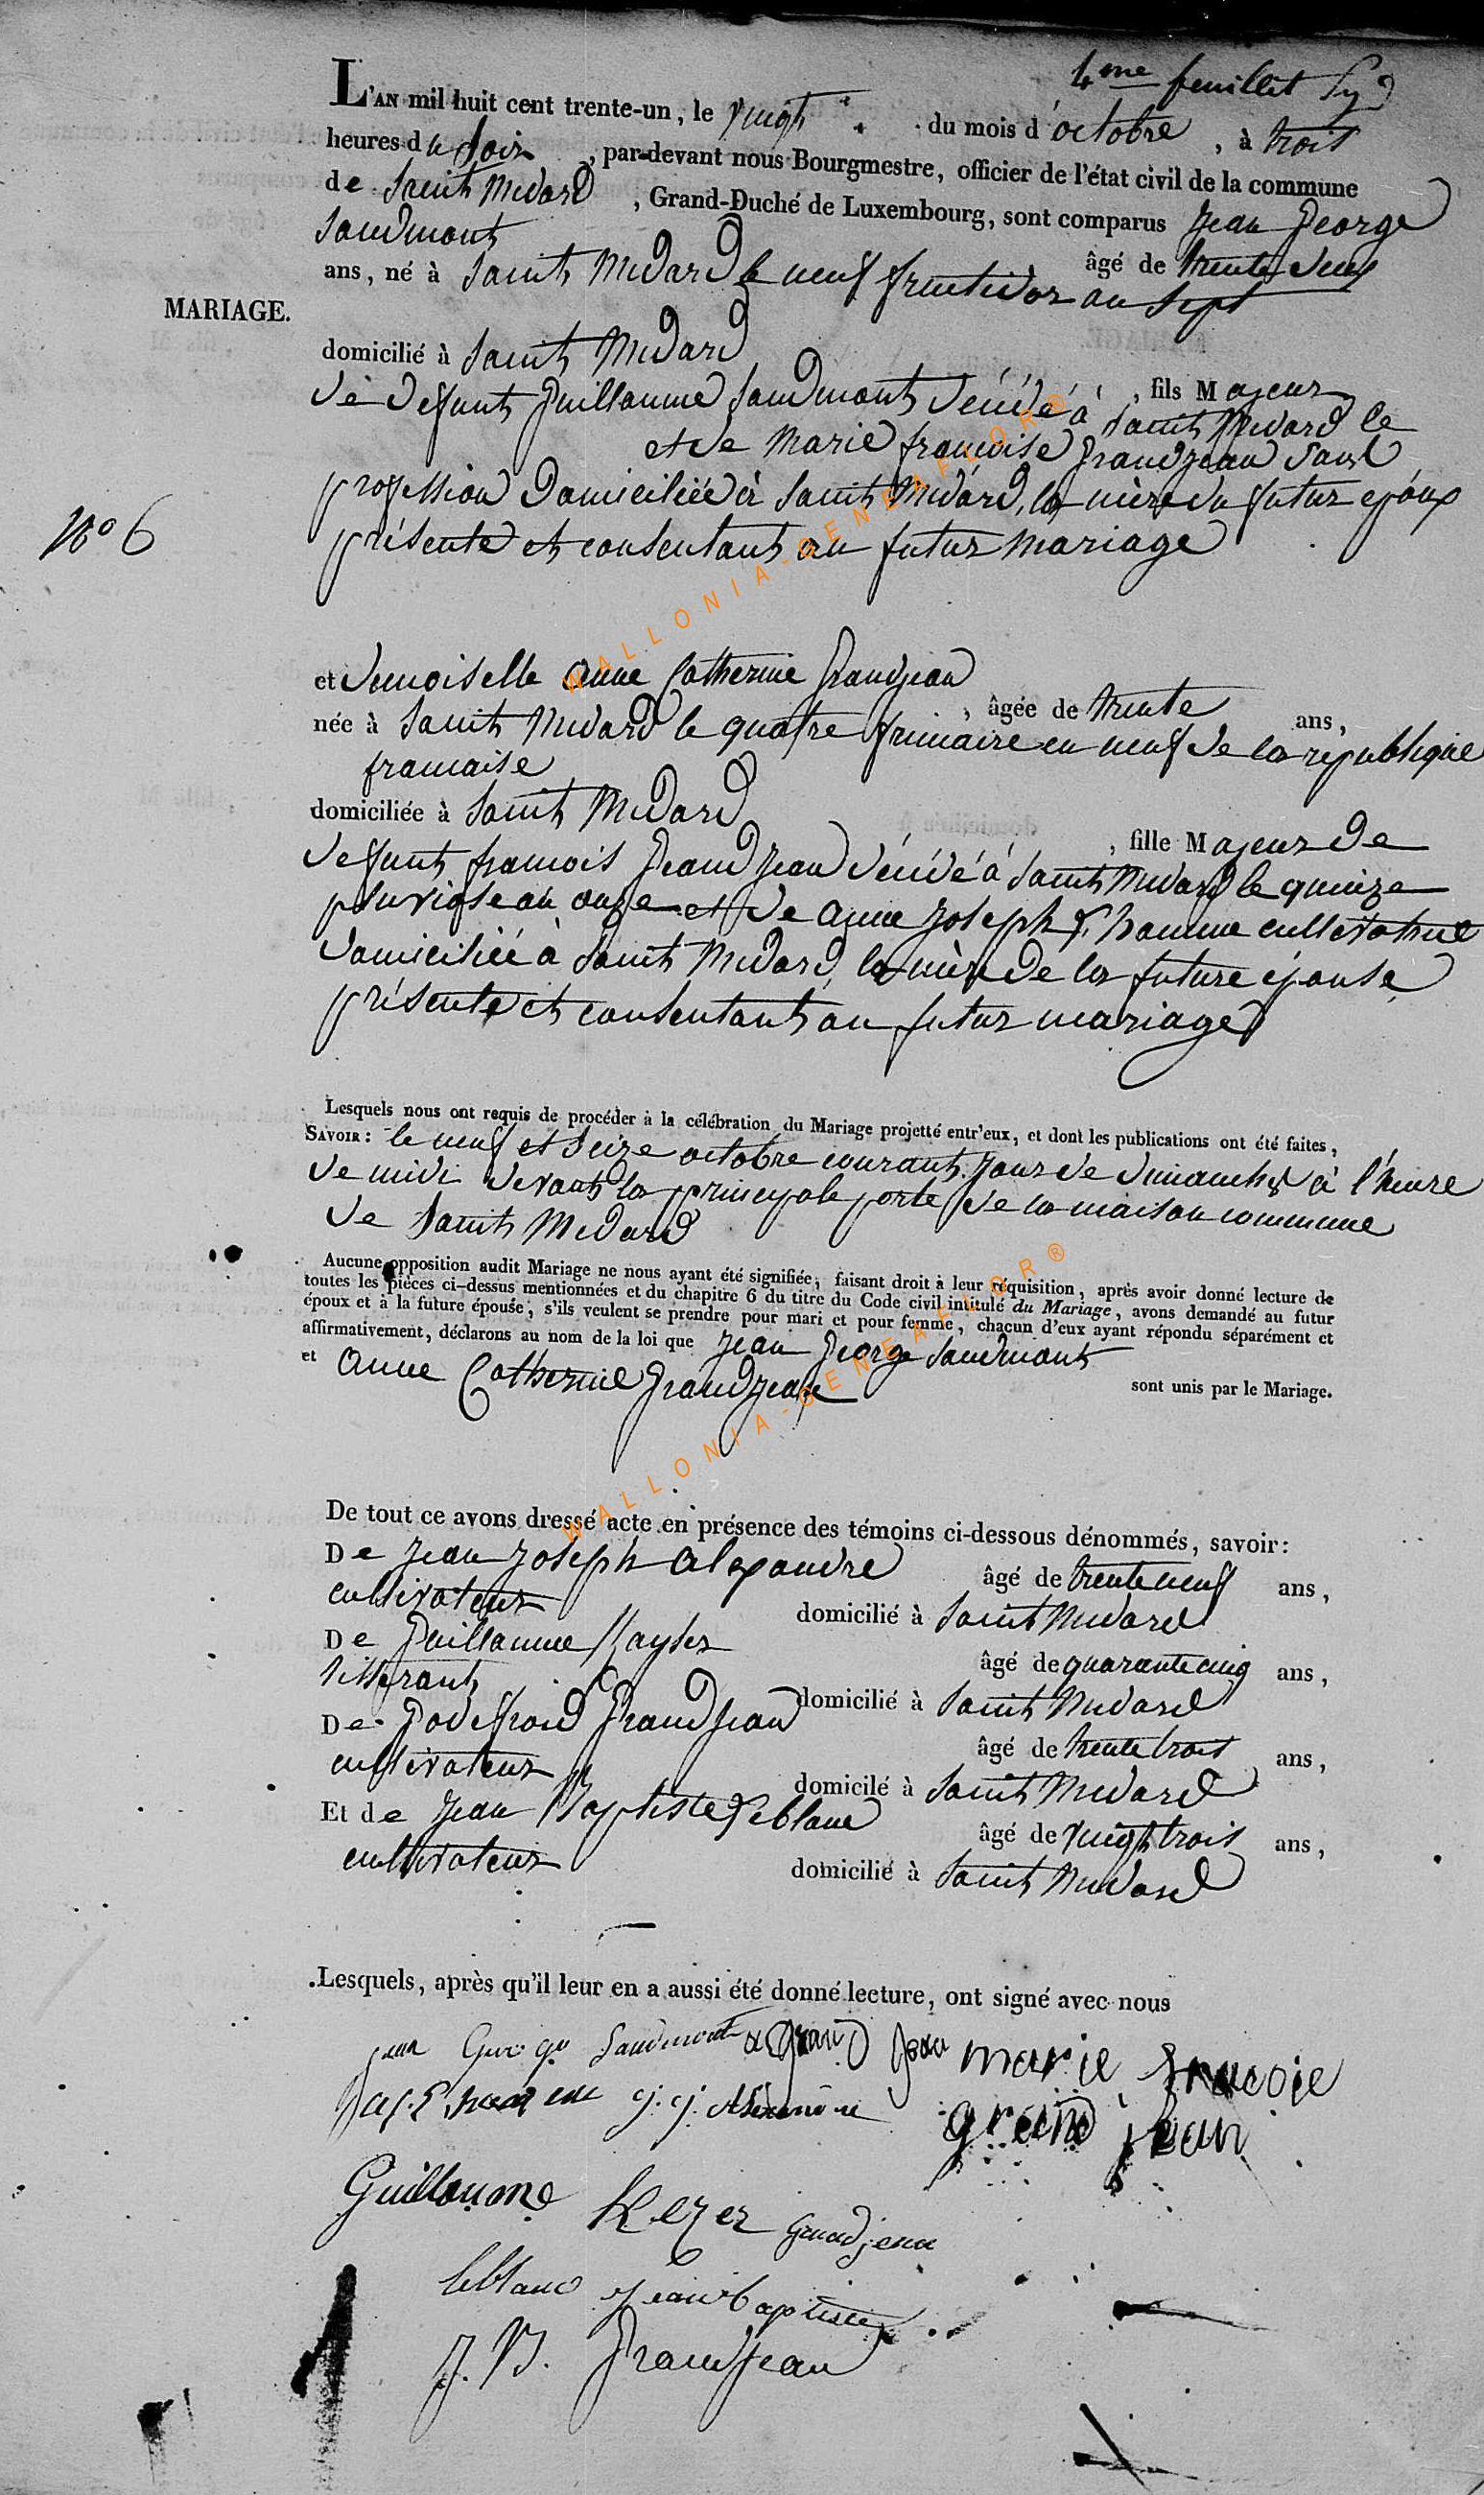 4me feuillet
L'AN mil huit cent trente-un, le vingt du mois d'octobre, à trois
heures du soir, par-devant nous Bourgmestre, officier de l'état civil de la commune
de Saint Médard, Grand-Duché de Luxembourg, sont comparus Jean George
Saudmont âgé de trente deux
ans, né à Saint Médard le neuf fructidor an sept
MARIAGE.
domicilié à Saint Médard, fils Majeur
de défunt Guillaume Saudmont décédé à Saint Médard le
et de Marie françoise Grandjean sans
profession domiciliée à Saint Médard, la mère du futur epoux
N° 6
présente et consentant au futur mariage
et demoiselle Anne Catherine Grandjean
, âgée de trente ans,
née à Saint Médard le quatre frimaire an neuf de la république
francaise
domiciliée à Saint Médard
, fille Majeur de
defunt francois Grandjean décédé à Saint Médard le quinze
pluviose an onze et de Anne Joseph cultivatrice
domiciliée à Saint Médard, la mère de la future épouse
présente et consentant au futur mariage
Lesquels nous ont requis de procéder à la célébration du Mariage projetté entr'eux, et dont les publications ont été faites,
SAVOIR: le neuf et seize octobre courant jour de dimanche à l'heure
de midi devant la principale porte de la maison commune
de Saint Médard
Aucune opposition audit Mariage ne nous ayant été signifiée, faisant droit à leur réquisition, après avoir donné lecture de
toutes les pièces ci-dessus mentionnées et du chapitre 6 du titre du Code civil intitulé du Mariage, avons demandé au futur
époux et à la future épouse, s'ils veulent se prendre pour mari et pour femme, chacun d'eux ayant répondu séparément et
affirmativement, déclarons au nom de la loi que Jean George Saudmont
et Anne Catherine Grandjean
sont unis par le Mariage.
De tout ce avons dressé acte en présence des témoins ci-dessous dénommés, savoir:
De Jean Joseph Alexandre âgé de trente neuf ans,
cultivateur domicilié à Saint Médard
De Guillaume Kayser âgé de quarante cinq ans,
tisserant domicilié à Saint Médard
De Godefroid Grandjean âgé de trente trois ans,
cultivateur domicilé à Saint Médard
Et de Jean Baptiste Leblanc âgé de vingt trois ans,
cultivateur domicilié à Saint Médard
Lesquels, après qu'il leur en a aussi été donné lecture, ont signé avec nous
jean George Saudmont a c grand jean marie fracoie
j. j. Alexandre grand jean
Guillaume Kezer Grandjean
leblanc jean baptiste
J. B. Grandjean
WALLONIA-GENEAFLOR®
WALLONIA-GENEAFLOR®